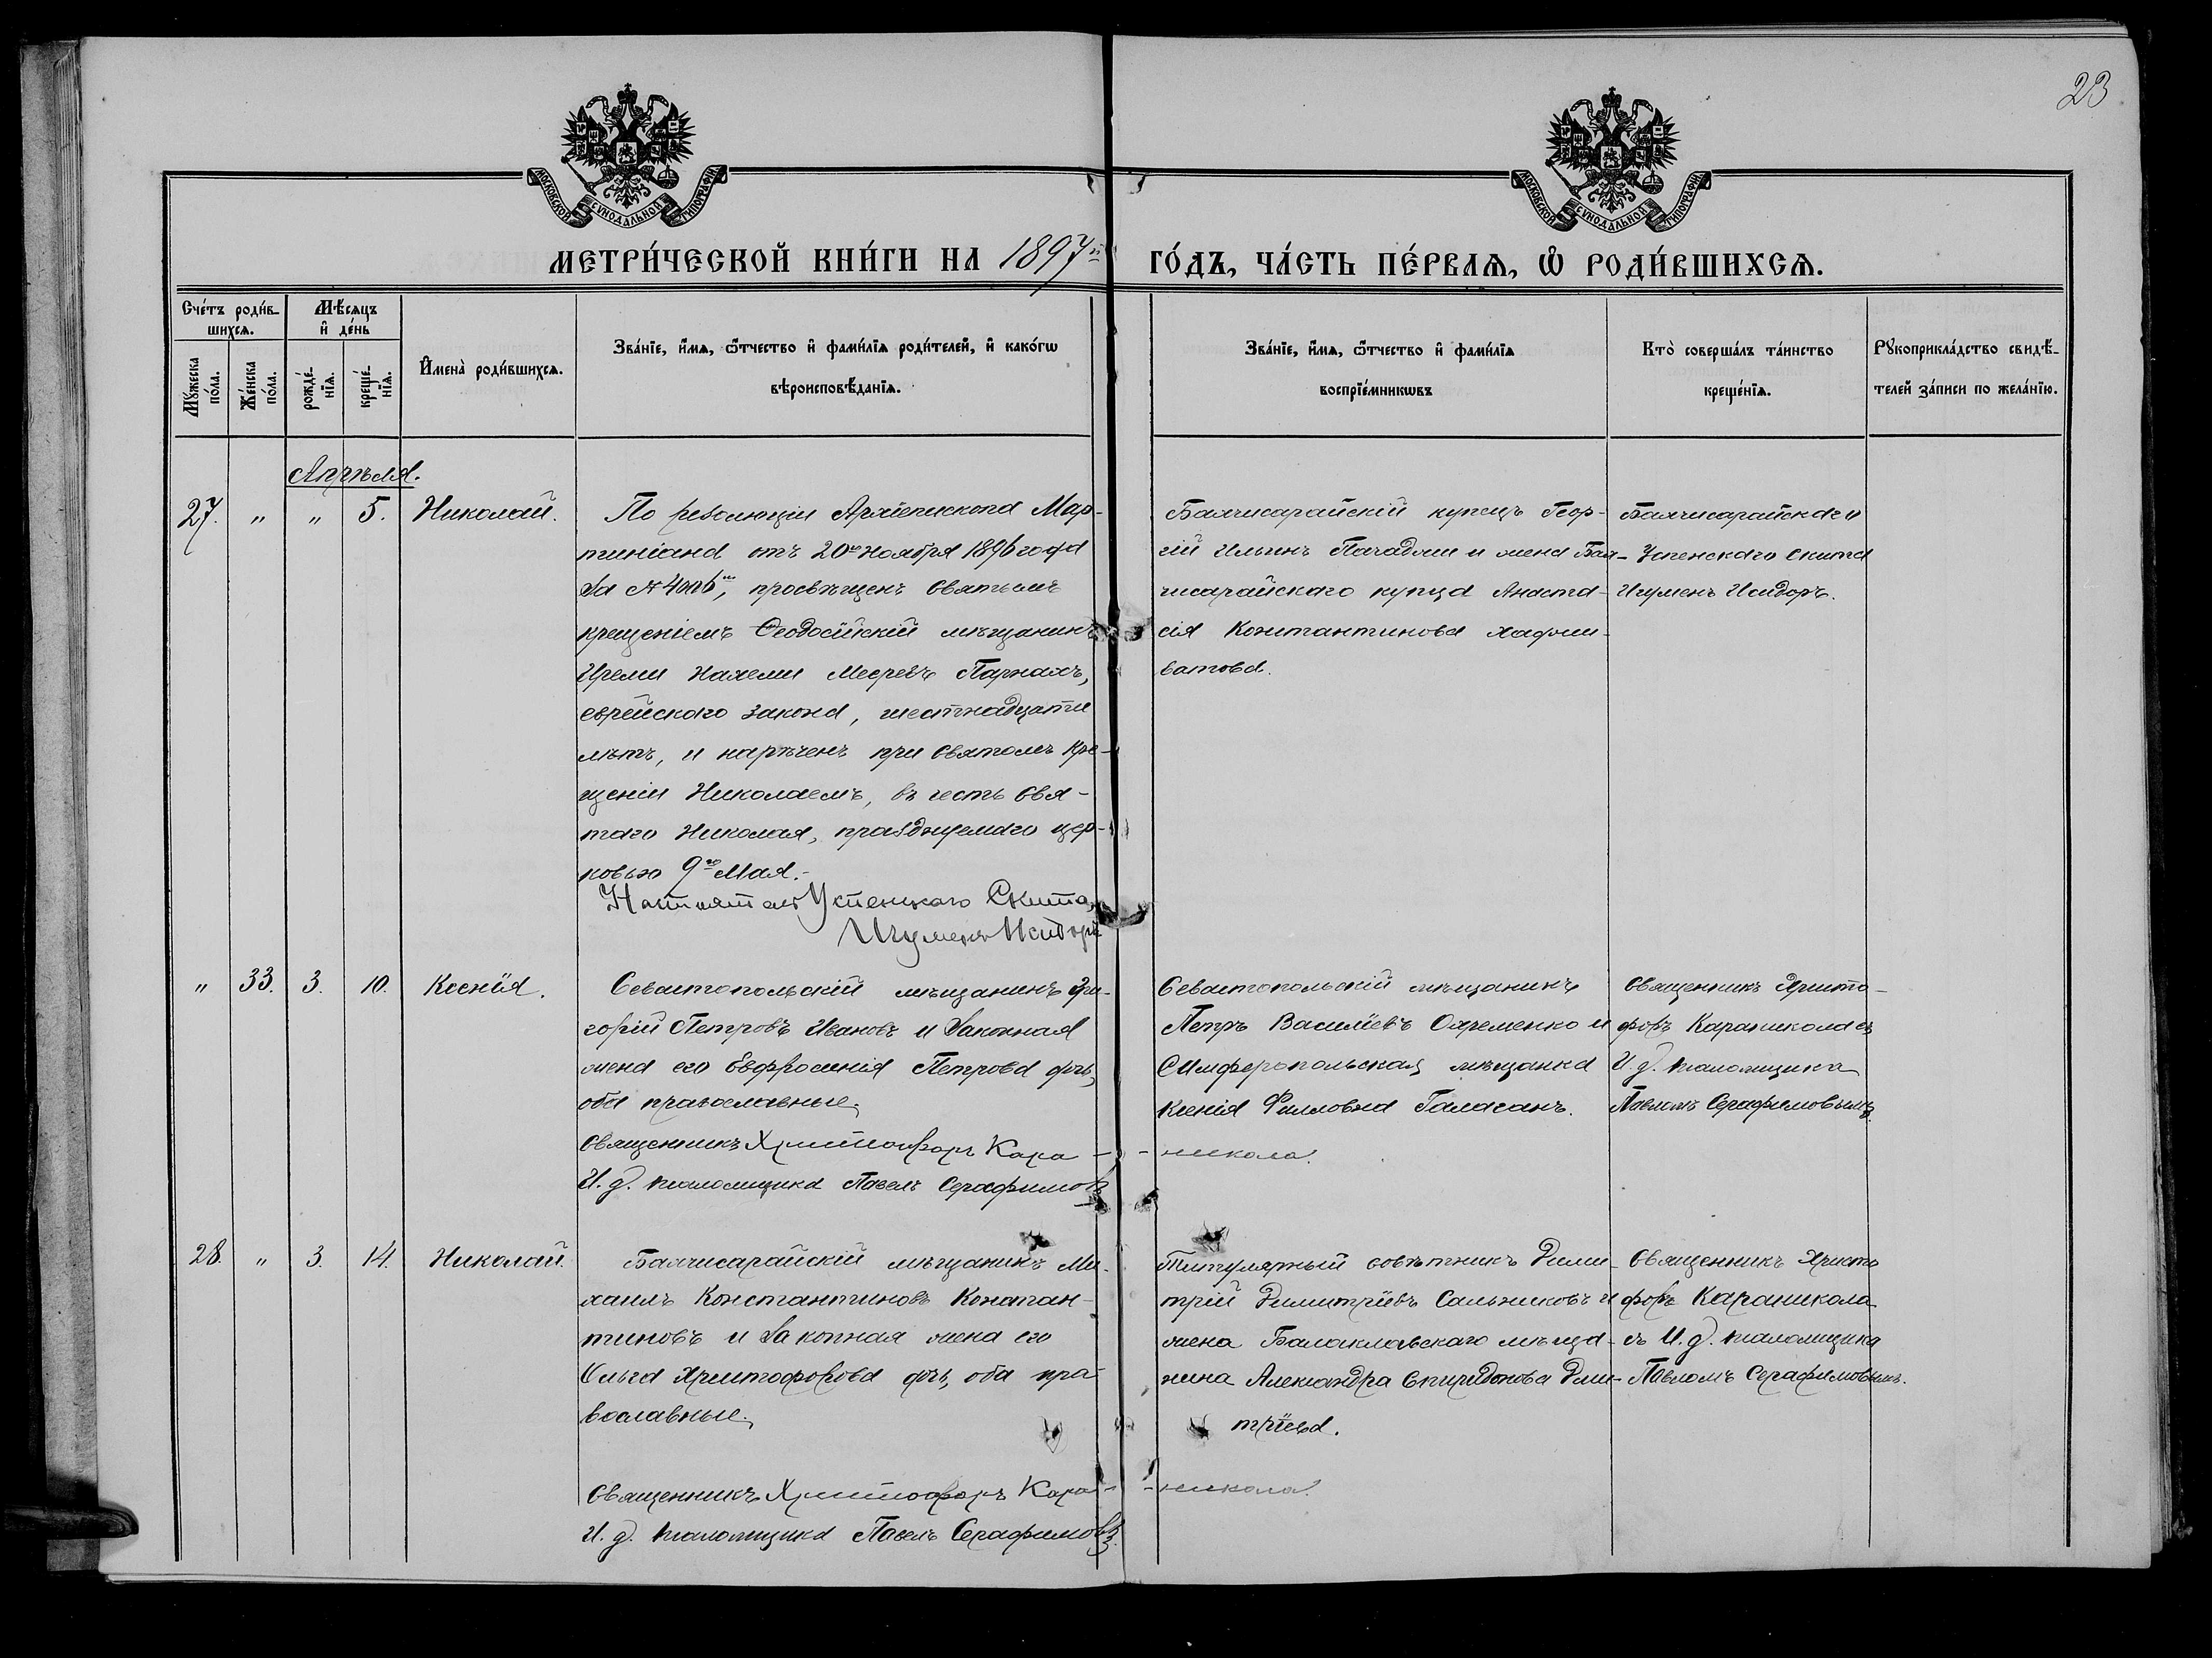 23
МОСКОВСКОЙ СУНОДАЛЬНОЙ ТИПОГРАФІИ
МОСКОВСКОЙ СУНОДАЛЬНОЙ ТИПОГРАФІИ
МЕТРИ́ЧЕСКОЙ КНИ́ГИ НА 1897й
ГО́ДЪ, ЧА́СТЬ ПЕ́РВАѦ, Ѡ҆ РОДИ́ВШИХСѦ.
Сче́тъ роди́в-
шихсѧ.
Мꙋ́жеска по́ла.
Же́нска по́ла.
Мѣ́сѧцъ
и҆ де́нь
рожде́-
нїѧ.
креще́-
нїѧ.
И҆мена̀ роди́вшихсѧ.
Зва́нїе, и҆́мѧ, ѻ҆́тчество и҆ фами́лїѧ роди́телей, и҆ како́гѡ
вѣроисповѣ́данїѧ.
Зва́нїе, и҆́мѧ, ѻ҆́тчество и҆ фами́лїѧ
воспрїе́мникѡвъ
Кто̀ соверша́лъ та́инство
креще́нїѧ.
Рꙋкоприкла́дство свидѣ́-
телей за́писи по жела́нїю.
Апрѣля.
27. " " 5. Николай.
По резолюціи Архіепископа Мар-
тиніана отъ 20го ноября 1896 года
за №, просвѣщенъ Святымъ
крещеніемъ Ѳеодосійскій мѣщанинъ
Парнахъ,
еврейскаго закона, шестнадцати
лѣтъ, и нареченъ при Святомъ Кре-
щеніи Николаемъ, въ честь Свя-
таго Николая, празднуемаго цер-
ковью 9го Мая.-
Настоятель Успенскаго Скита,
Игуменъ Исидоръ
Бахчисарайскій купецъ Геор-
гій Ильинъ и жена Бах-
чисарайскаго купца Анаста-
сія Константинова
Бахчисарайскаго
Успенскаго Скита
Игуменъ Исидоръ.
" 33. 3. 10. Ксенія.
Севастопольскій мѣщанинъ Гри-
горій Петровъ Ивановъ и законная
жена его Евфросинія Петрова дочь,
оба православные.
Священникъ Христофоръ Кара - - никола.
И. д. псаломщика Павелъ Серафимовъ
Севастопольскій мѣщанинъ
Петръ Василіевъ Охременко и
Симферопольская мѣщанка
Ксенія Галасанъ.
Священникъ Христо-
форъ Караникола съ
И. д. псаломщика
Павломъ Серафимовымъ.
28. " 3. 14. Николай.
Бахчисарайскій мѣщанинъ Ми-
хаилъ Константиновъ Констан-
тиновъ и законная жена его
Ольга Христофорова дочь, оба пра-
вославные.
Священникъ Христофоръ Кара - - никола.
И. д. псаломщика Павелъ Серафимовъ.
Титулярный совѣтникъ Дими-
трій Димитріевъ Сальниковъ и
жена Балаклавскаго мѣща-
нина Александра Спиридонова Дми-
тріева.
Священникъ Христо
форъ Караникола
съ И. д. псаломщика
Павломъ Серафимовымъ.